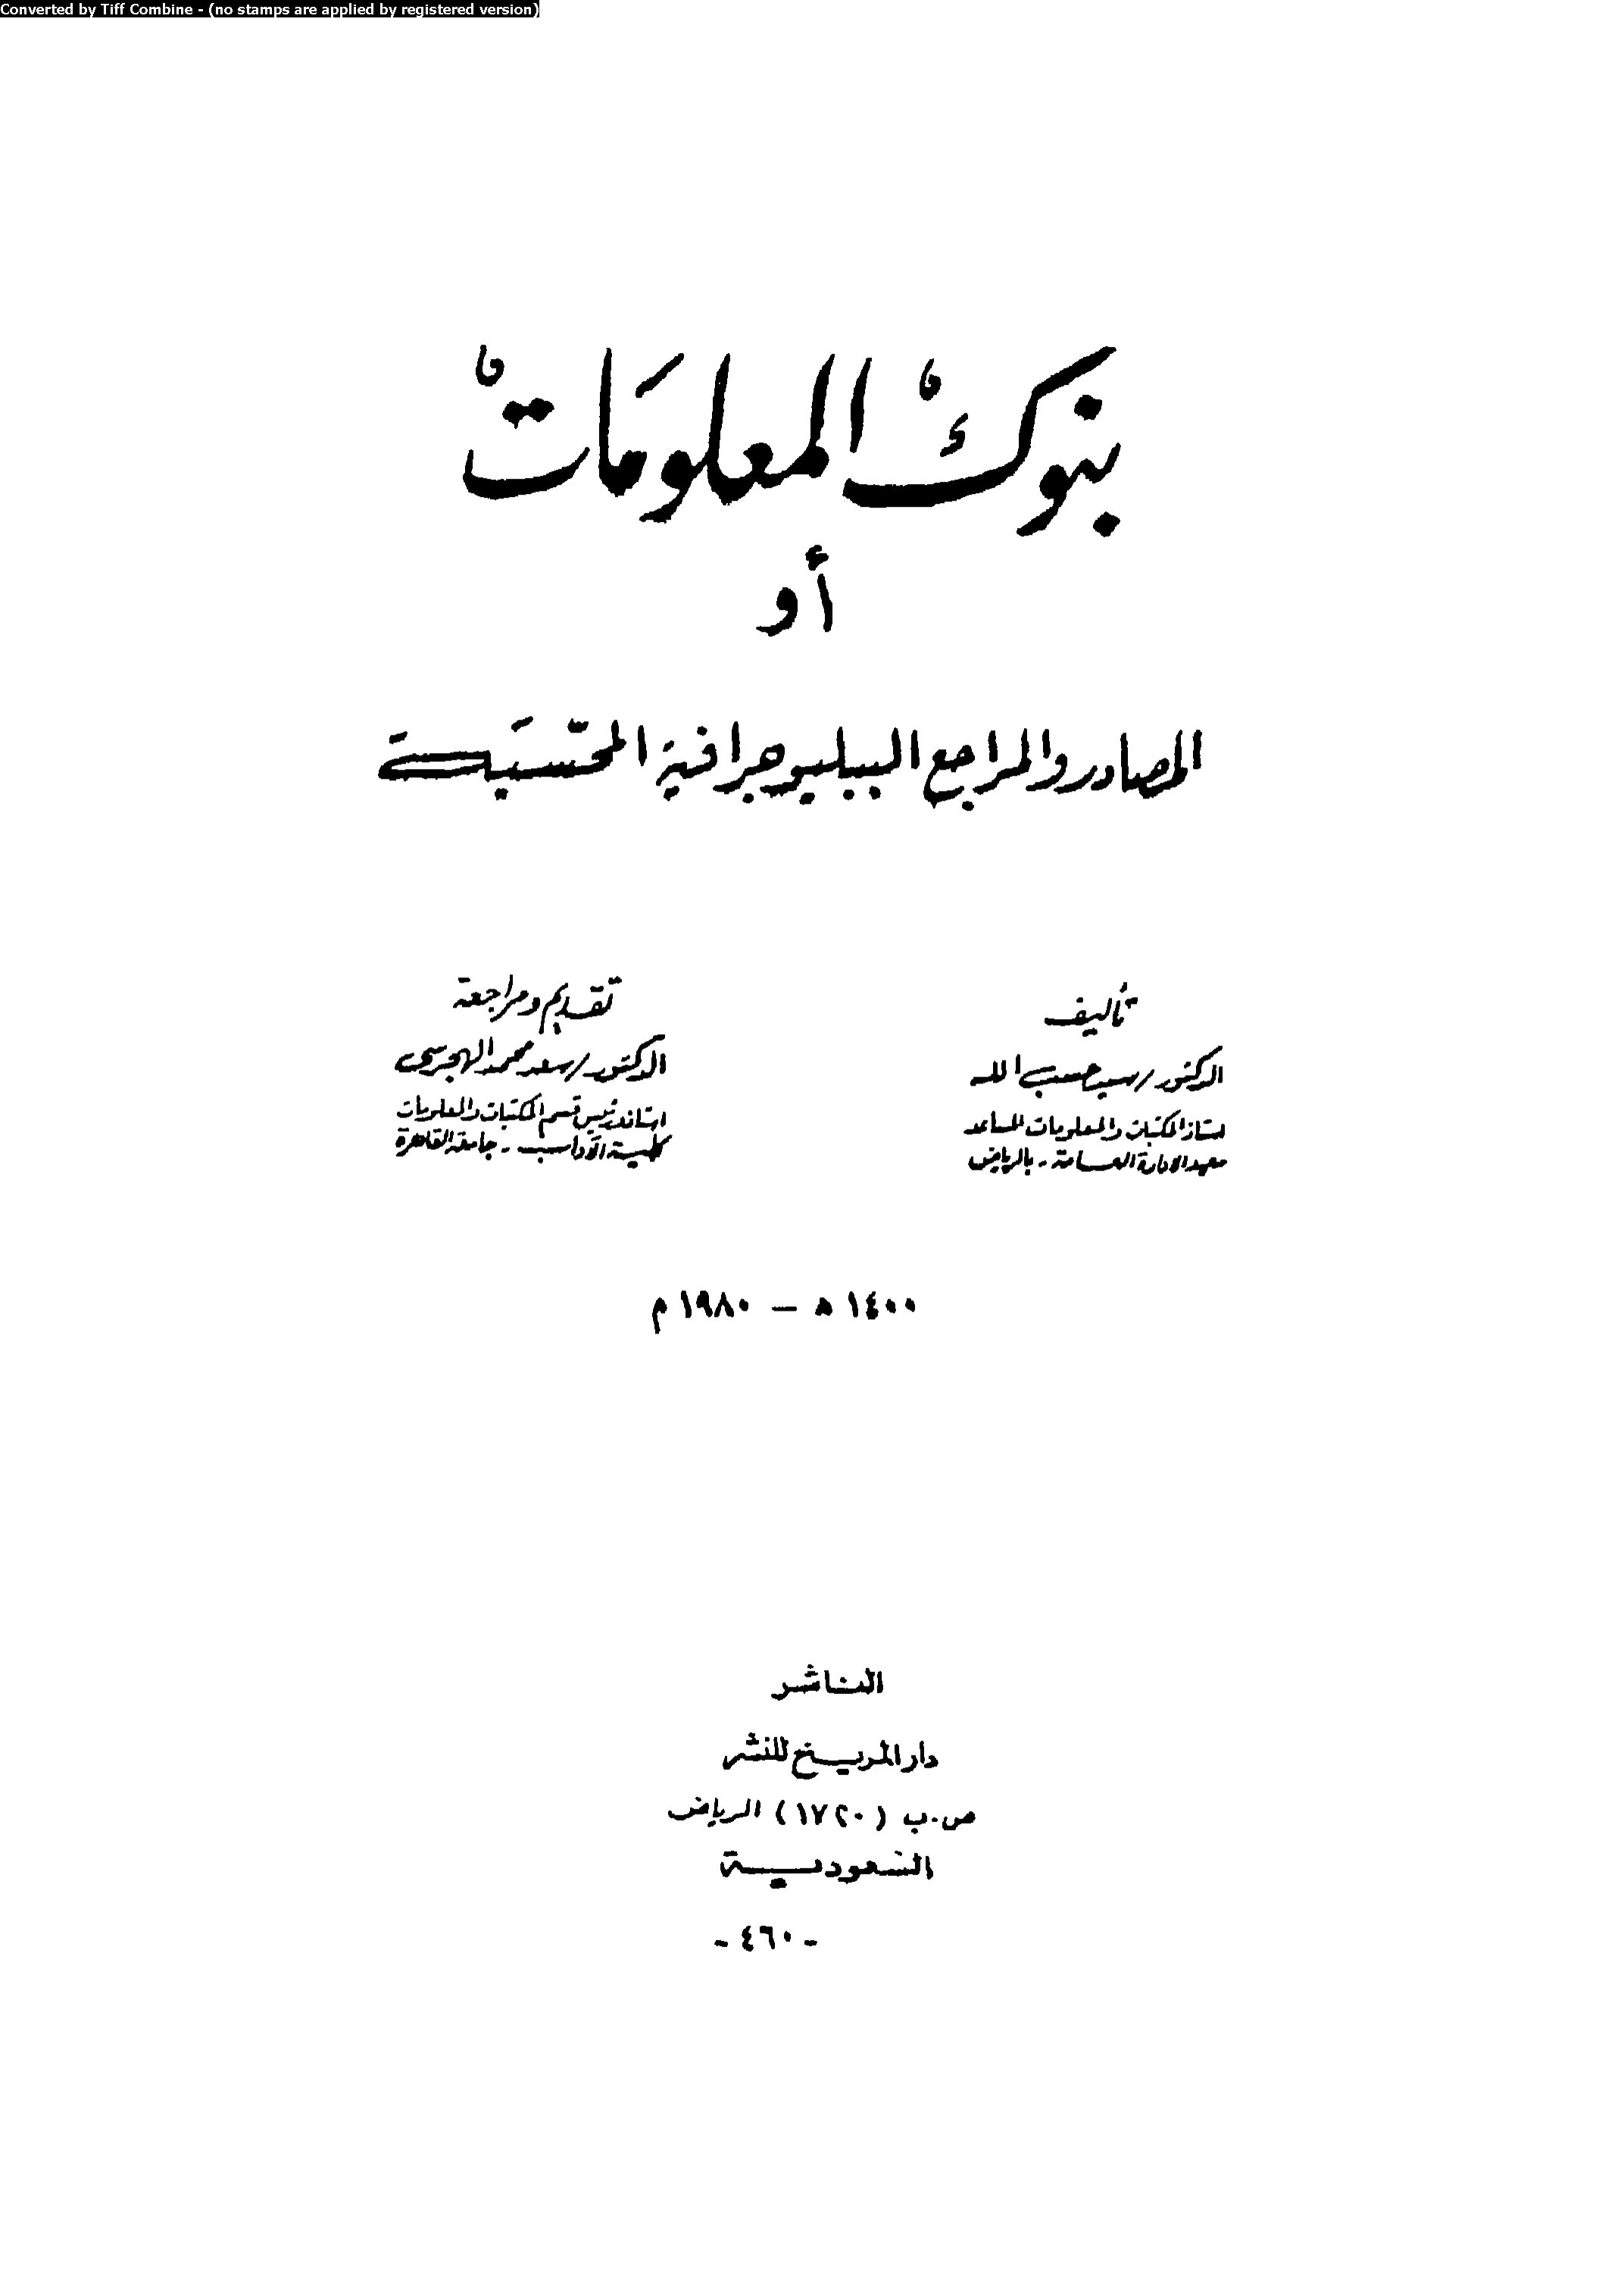 Converted by Tiff Combine - (no stamps are applied by registered version)
بنوك المعلومات
أو
المصادر والمراجع الببليوجرافية المحسّبة
تأليف
الدكتور / سيد حسب الله
استاذ المكتبات والمعلومات المساعد
معهد الادارة العامة - بالرياض
تقديم ومراجعة
الدكتور / سعد محمد الهجرسى
استاذ ورئيس قسم المكتبات والمعلومات
كلية الآداب - جامعة القاهرة
١٤٠٠ هـ - ١٩٨٠ م
الناشر
دار المريخ للنشر
ص.ب (١٧٢٠) الرياض
السعودية
- ٤٦٠ -